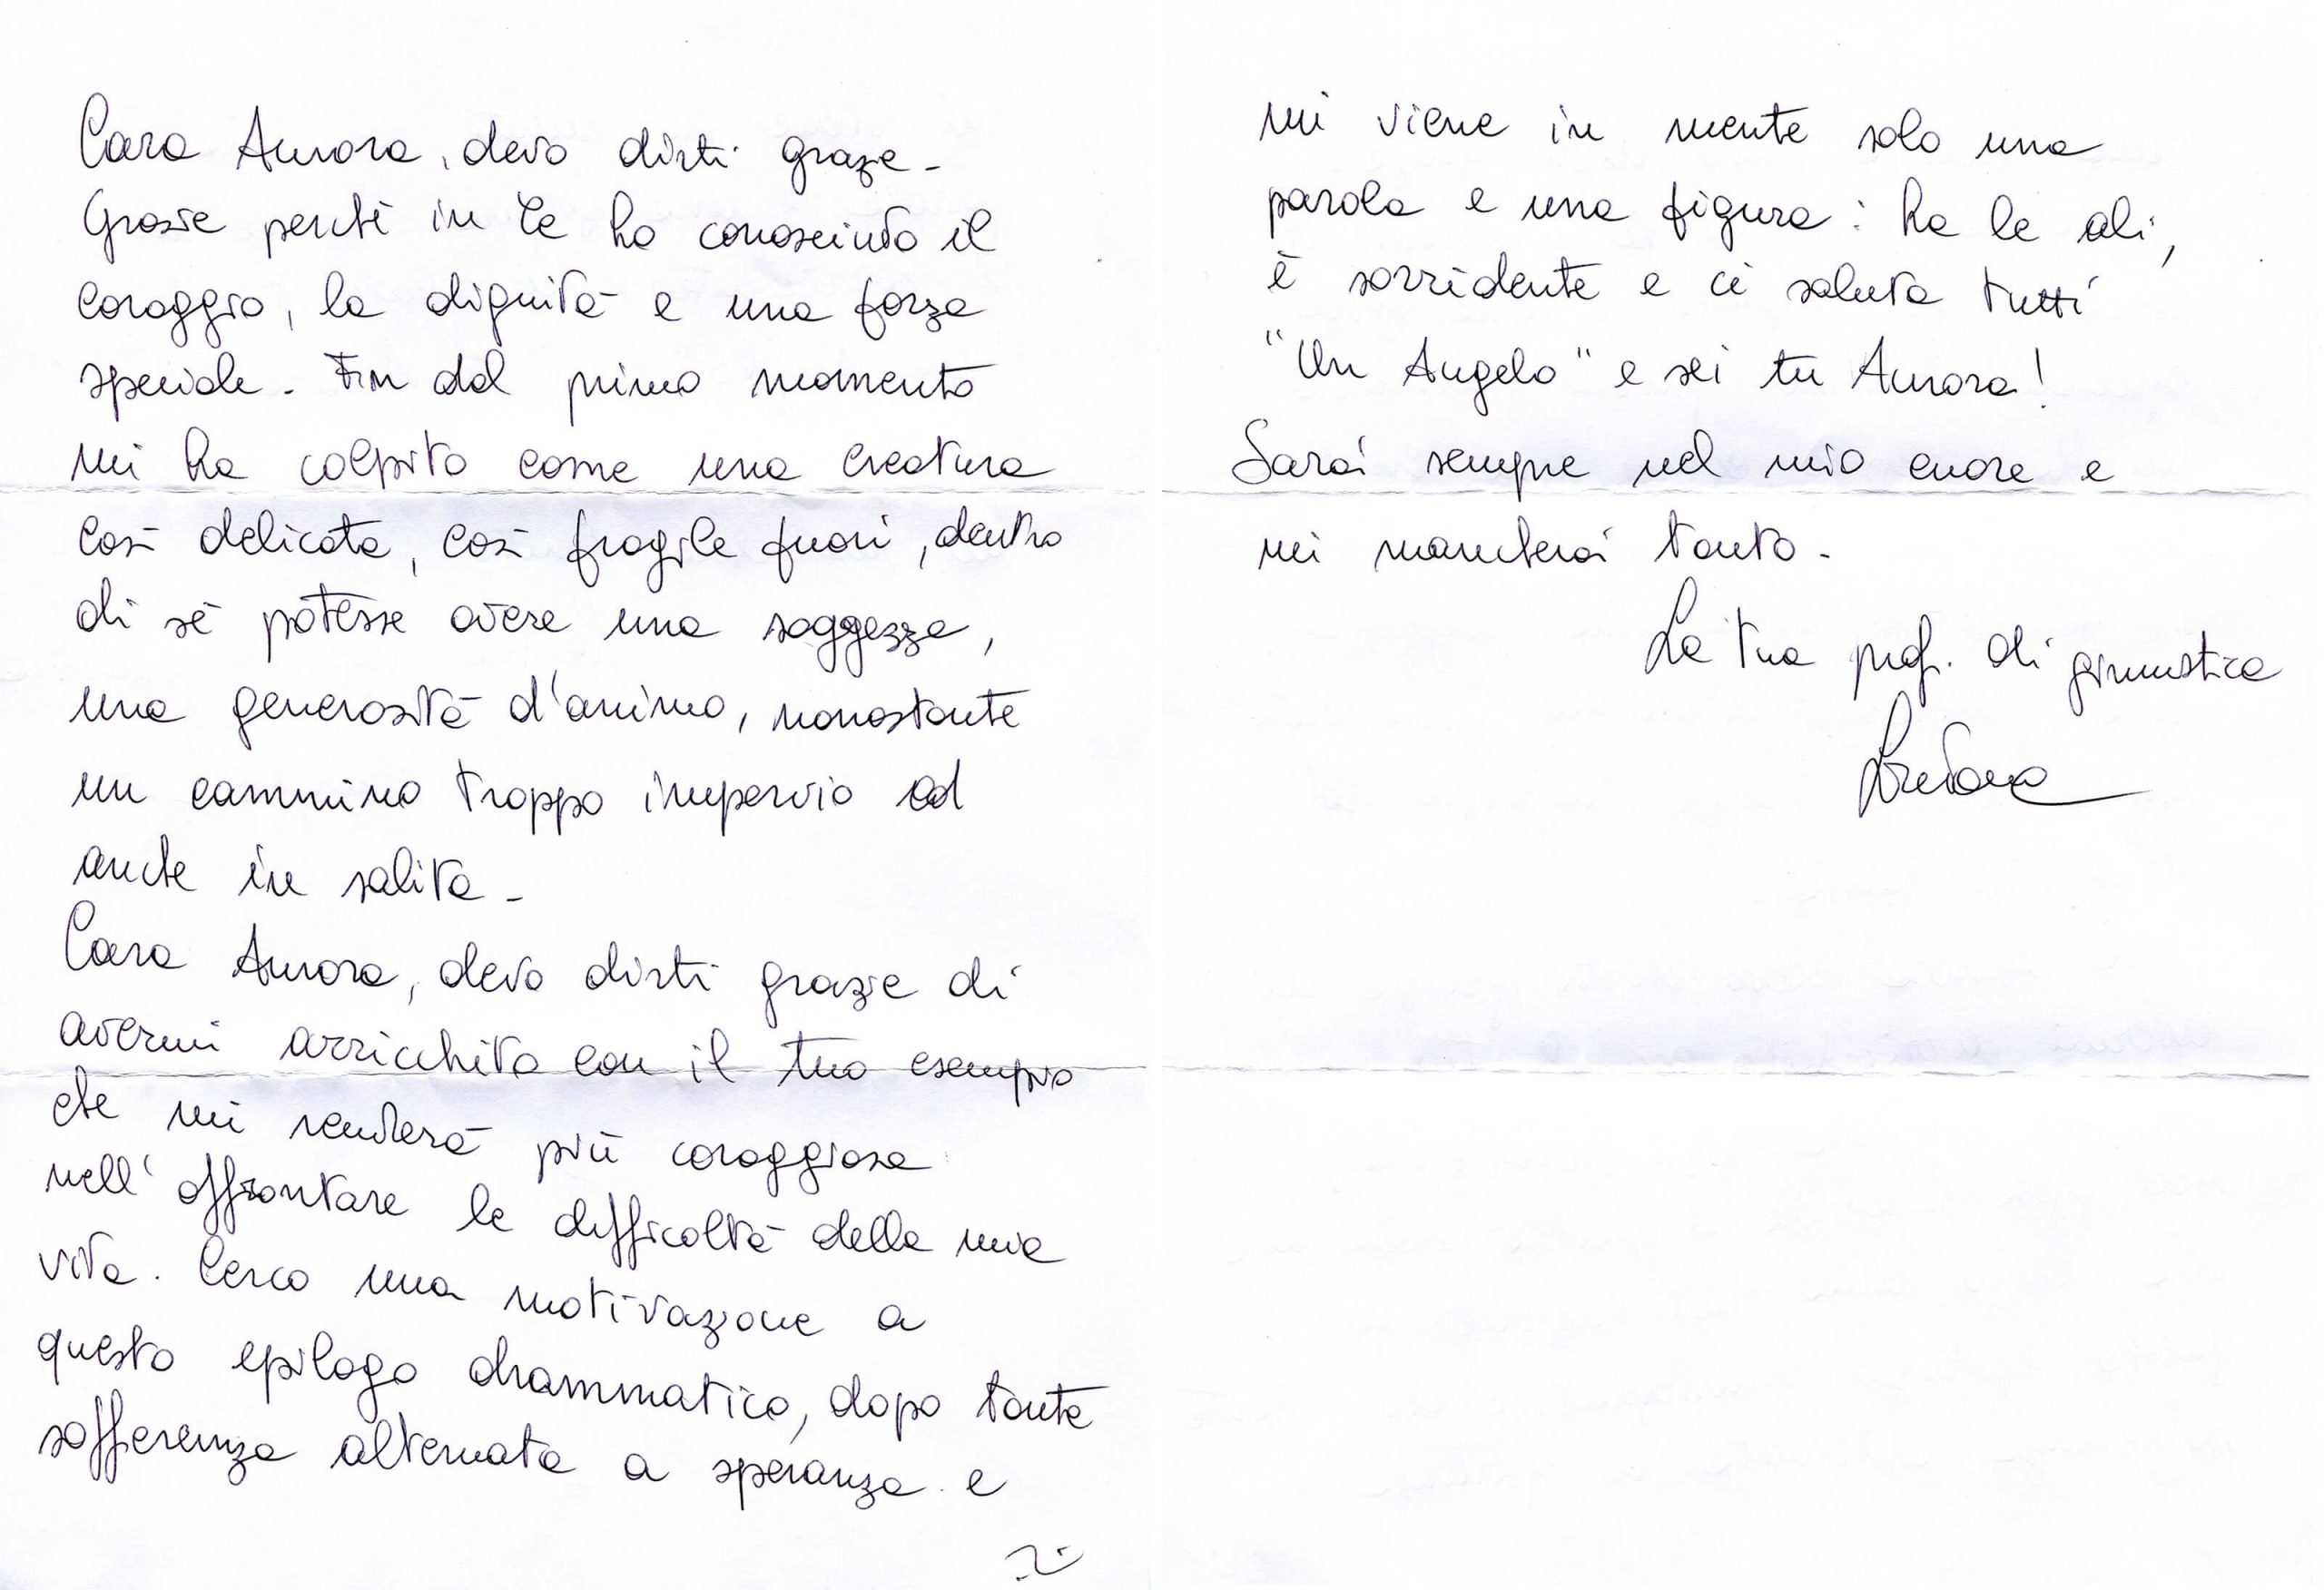 Cara Aurora, devo dirti grazie -
Grazie perchè in te ho conosciuto il
coraggio, la dignità e una forza
speciale - Fin dal primo momento
mi ha colpito come una creatura
così delicata, così fragile fuori, dentro
di sè potesse avere una saggezza,
una generosità d'animo, nonostante
un cammino troppo impervio ed
anche in salita -
Cara Aurora, devo dirti grazie di
avermi arricchita con il tuo esempio
che mi renderà più coraggiosa
nell'affrontare le difficoltà della mia
vita. Cerco una motivazione a
questo epilogo drammatico, dopo tanta
sofferenza alternata a speranza e
mi viene in mente solo una
parola e una figura: ha le ali,
è sorridente e ci saluta tutti
"Un Angelo" e sei tu Aurora!
Sarai sempre nel mio cuore e
mi mancherai tanto -
La tua prof. di ginnastica
Loredana